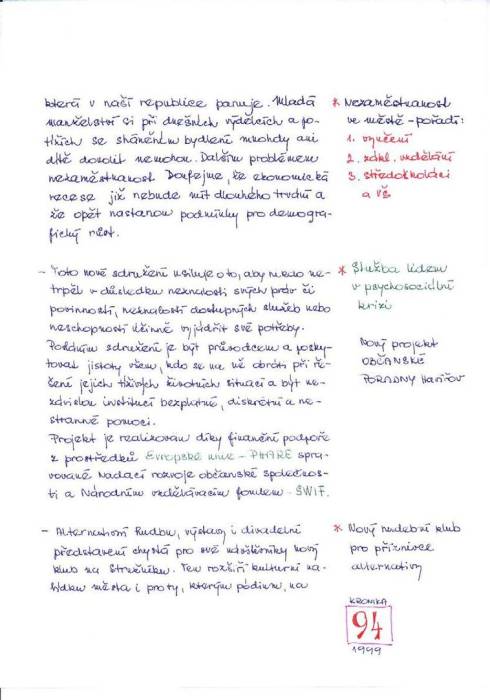 která v naší republice panuje. Mladá
manželství si při dnešních výdělcích a po-
tížích se sháněním bydlení mnohdy ani
dítě dovolit nemohou. Dalším problémem
nezaměstnanost. Doufejme, že ekonomická
recese již nebude mít dlouhého trvání a
že opět nastanou podmínky pro demogra-
fický růst.
* Nezaměstnanost
ve městě - pořadí:
1. vyučení
2. zákl. vzdělání
3. středoškoláci
a VŠ
- Toto nové sdružení usiluje o to, aby nikdo ne-
trpěl v důsledku neznalosti svých práv či
povinností, neznalosti dostupných služeb nebo
neschopnosti účinně vyjádřit své potřeby.
Posláním sdružení je být průvodcem a posky-
tovat jistoty všem, kdo se na ně obrátí při ře-
šení jejich tíživých životních situací a být ne-
závislou institucí bezplatné, diskrétní a ne-
stranné pomoci.
Projekt je realizován díky finanční podpoře
z prostředků Evropské unie - PHARE spra-
vované Nadací rozvoje občanské společnos-
ti a Národním vzdělávacím fondem - SWIF.
* Služba lidem
v psychosociální
krizi
Nový projekt
OBČANSKÉ
PORADNY Havířov
- Alternativní hudbu, výstavy i divadelní
představení chystá pro své návštěvníky nový
klub na Stružníku. Ten rozšíří kulturní na-
bídku města i proty, kterým pódium, na
* Nový hudební klub
pro příznivce
alternativy
KRONIKA
94
1999